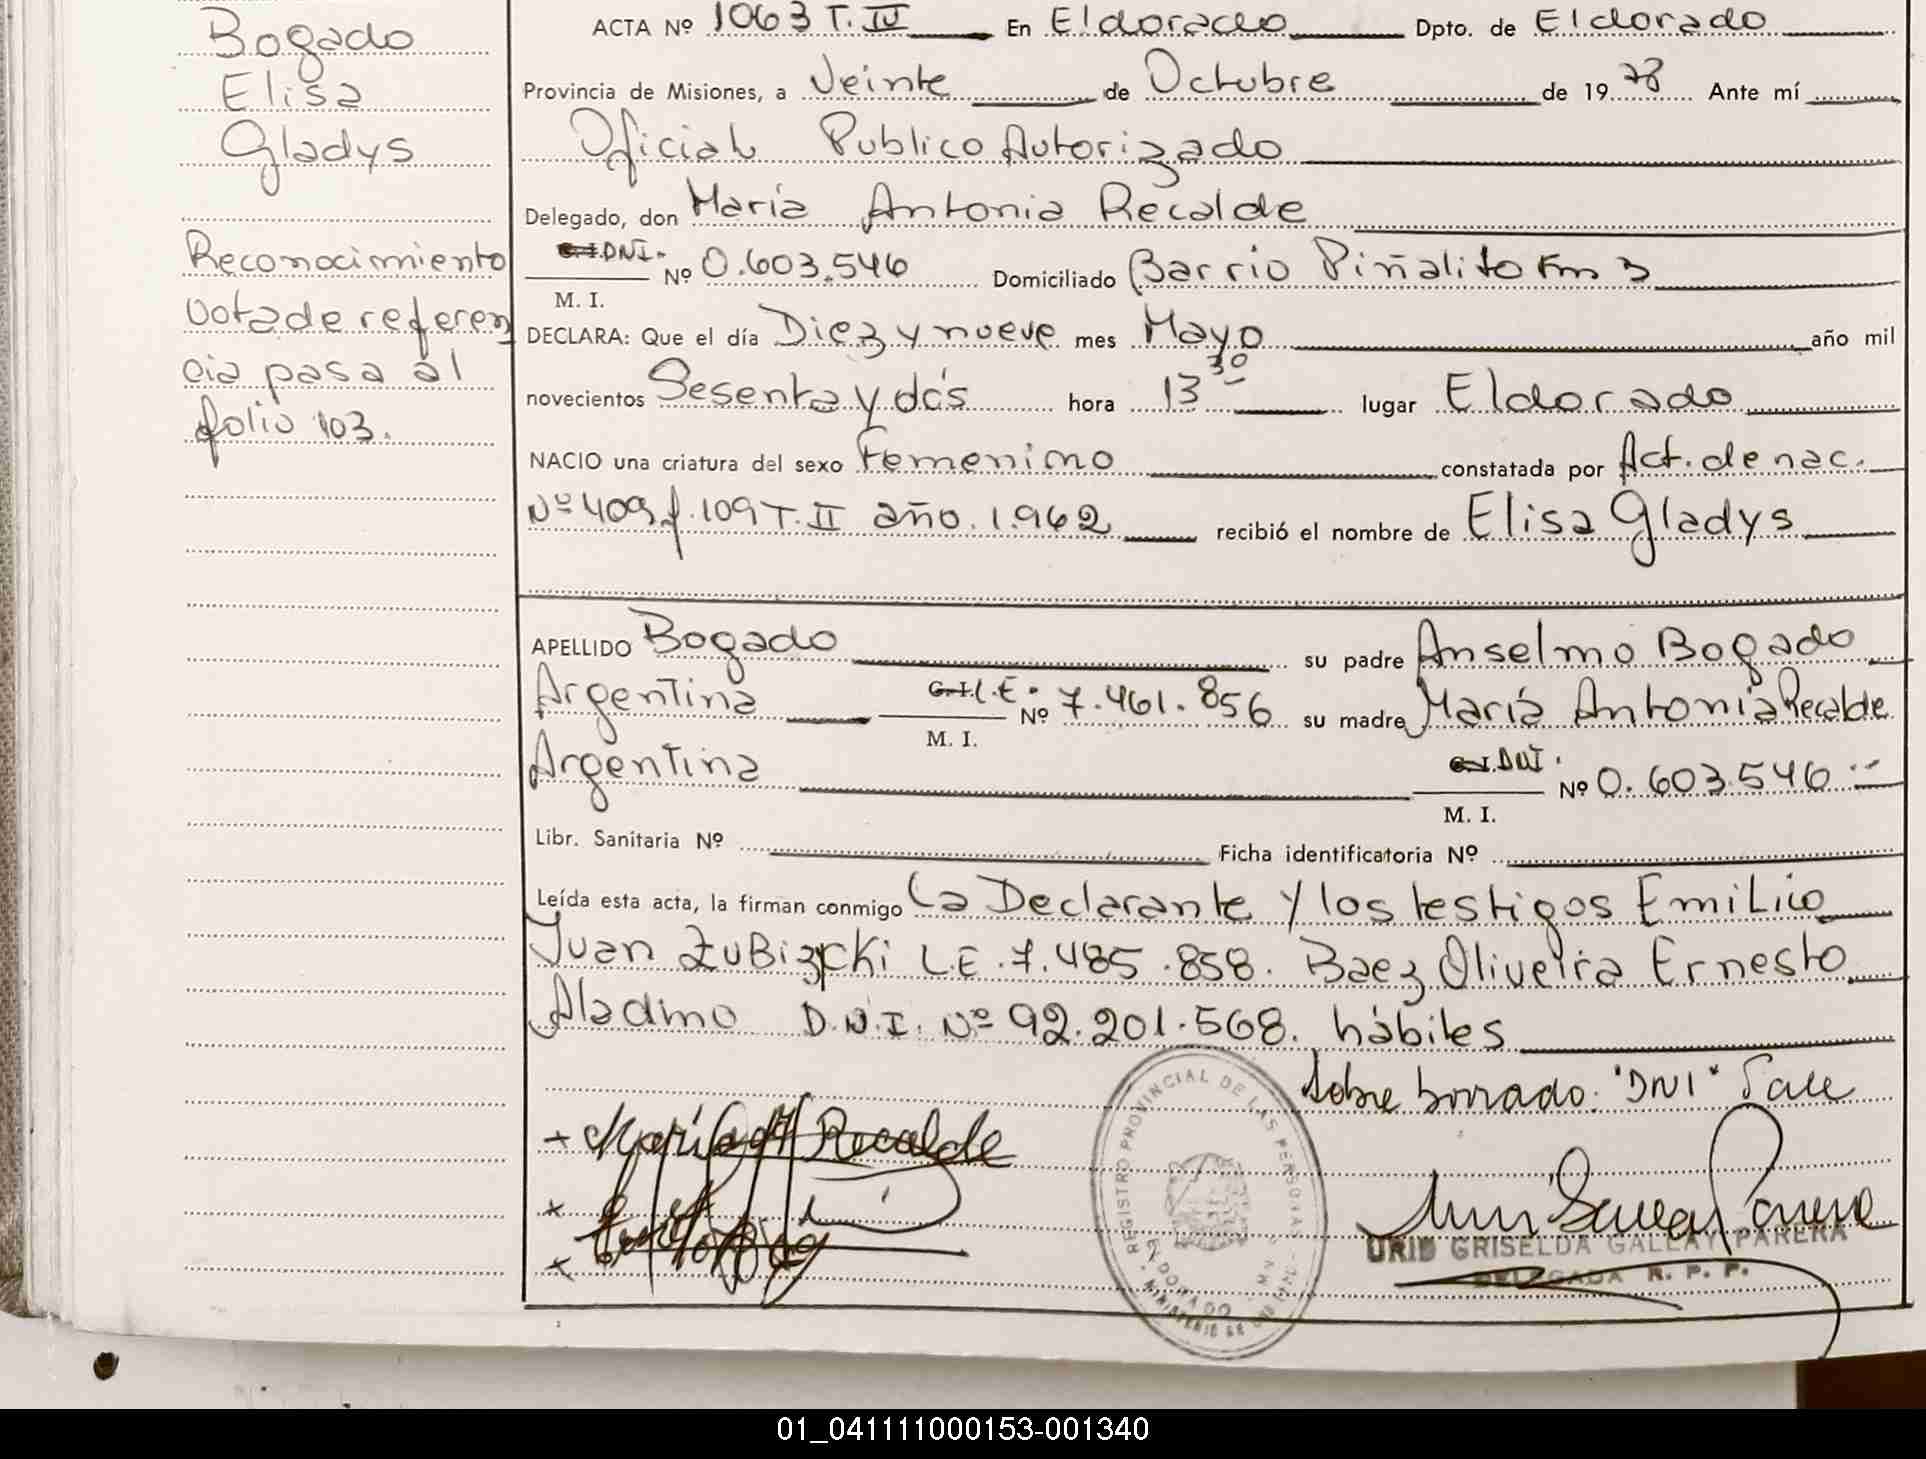 Bogado
Elisa
Gladys
Reconocimiento
Nota de referen
cia pasa al
folio 103.
ACTA Nº 1063 T. IV En Eldorado Dpto. de Eldorado
Provincia de Misiones, a Veinte de Octubre de 19 78 Ante mí
Oficial Publico Autorizado
Delegado, don María Antonia Recalde
C.I. DNI. Nº 0.603.546 Domiciliado Barrio Piñalito Km 3
M. I.
DECLARA: Que el día Diez y nueve mes Mayo año mil
novecientos Sesenta y dós hora 13 30 lugar Eldorado
NACIO una criatura del sexo Femenino constatada por Act. de nac.
Nº 409 f. 109 T. II año. 1.962 recibió el nombre de Elisa Gladys
APELLIDO Bogado su padre Anselmo Bogado
Argentina C.I. L.E. Nº 7.461.856 su madre María Antonia Recalde
M. I.
Argentina C.I. DNI. Nº 0.603.546
M. I.
Libr. Sanitaria Nº Ficha identificatoria Nº
Leída esta acta, la firman conmigo La Declarante y los testigos Emilio
Juan Zubizcki L.E. 7.485.858. Baez Oliveira Ernesto
Aladino D.N.I. Nº 92.201.568. hábiles
Sobre borrado: "DNI" Vale
María A Recalde
REGISTRO PROVINCIAL DE LAS PERSONAS
ELDORADO
MINISTERIO DE
GRISELDA GALLAY PARERA
DELEGADA R. P. P.
01_041111000153-001340